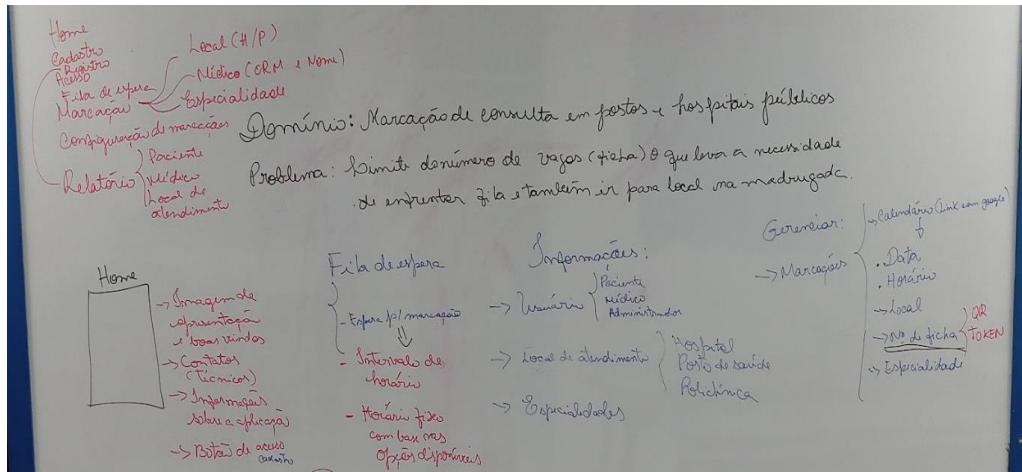 Home
Cadastro
Registro
Acesso
Fila de espera
Marcação
Local (H/P)
Médico (CRM e Nome)
Especialidade
Configuração de marcações
Relatório
Paciente
Médico
Local de
atendimento
Domínio: Marcação de consulta em postos e hospitais públicos
Problema: Limite do número de vagas (ficha) O que leva a necessidade
de enfrentar fila e também ir para local na madrugada.
Home
→ Imagem de
apresentação
e boas vindas
→ Contatos
(técnicos)
→ Informações
sobre a aplicação
→ Botão de acesso
cadastro
Fila de espera
- Espera p/ marcação
- Intervalo de
horário
- Horário fixo
com base nas
opções disponíveis
Informações:
→ Usuário
Paciente
Médico
Administrador
→ Local de atendimento
Hospital
Posto de saúde
Policlínica
→ Especialidades
Gerenciar:
→ Marcações
→ Calendário (Link com google)
. Data
. Horário
→ Local
→ No de ficha
QR
TOKEN
→ Especialidade